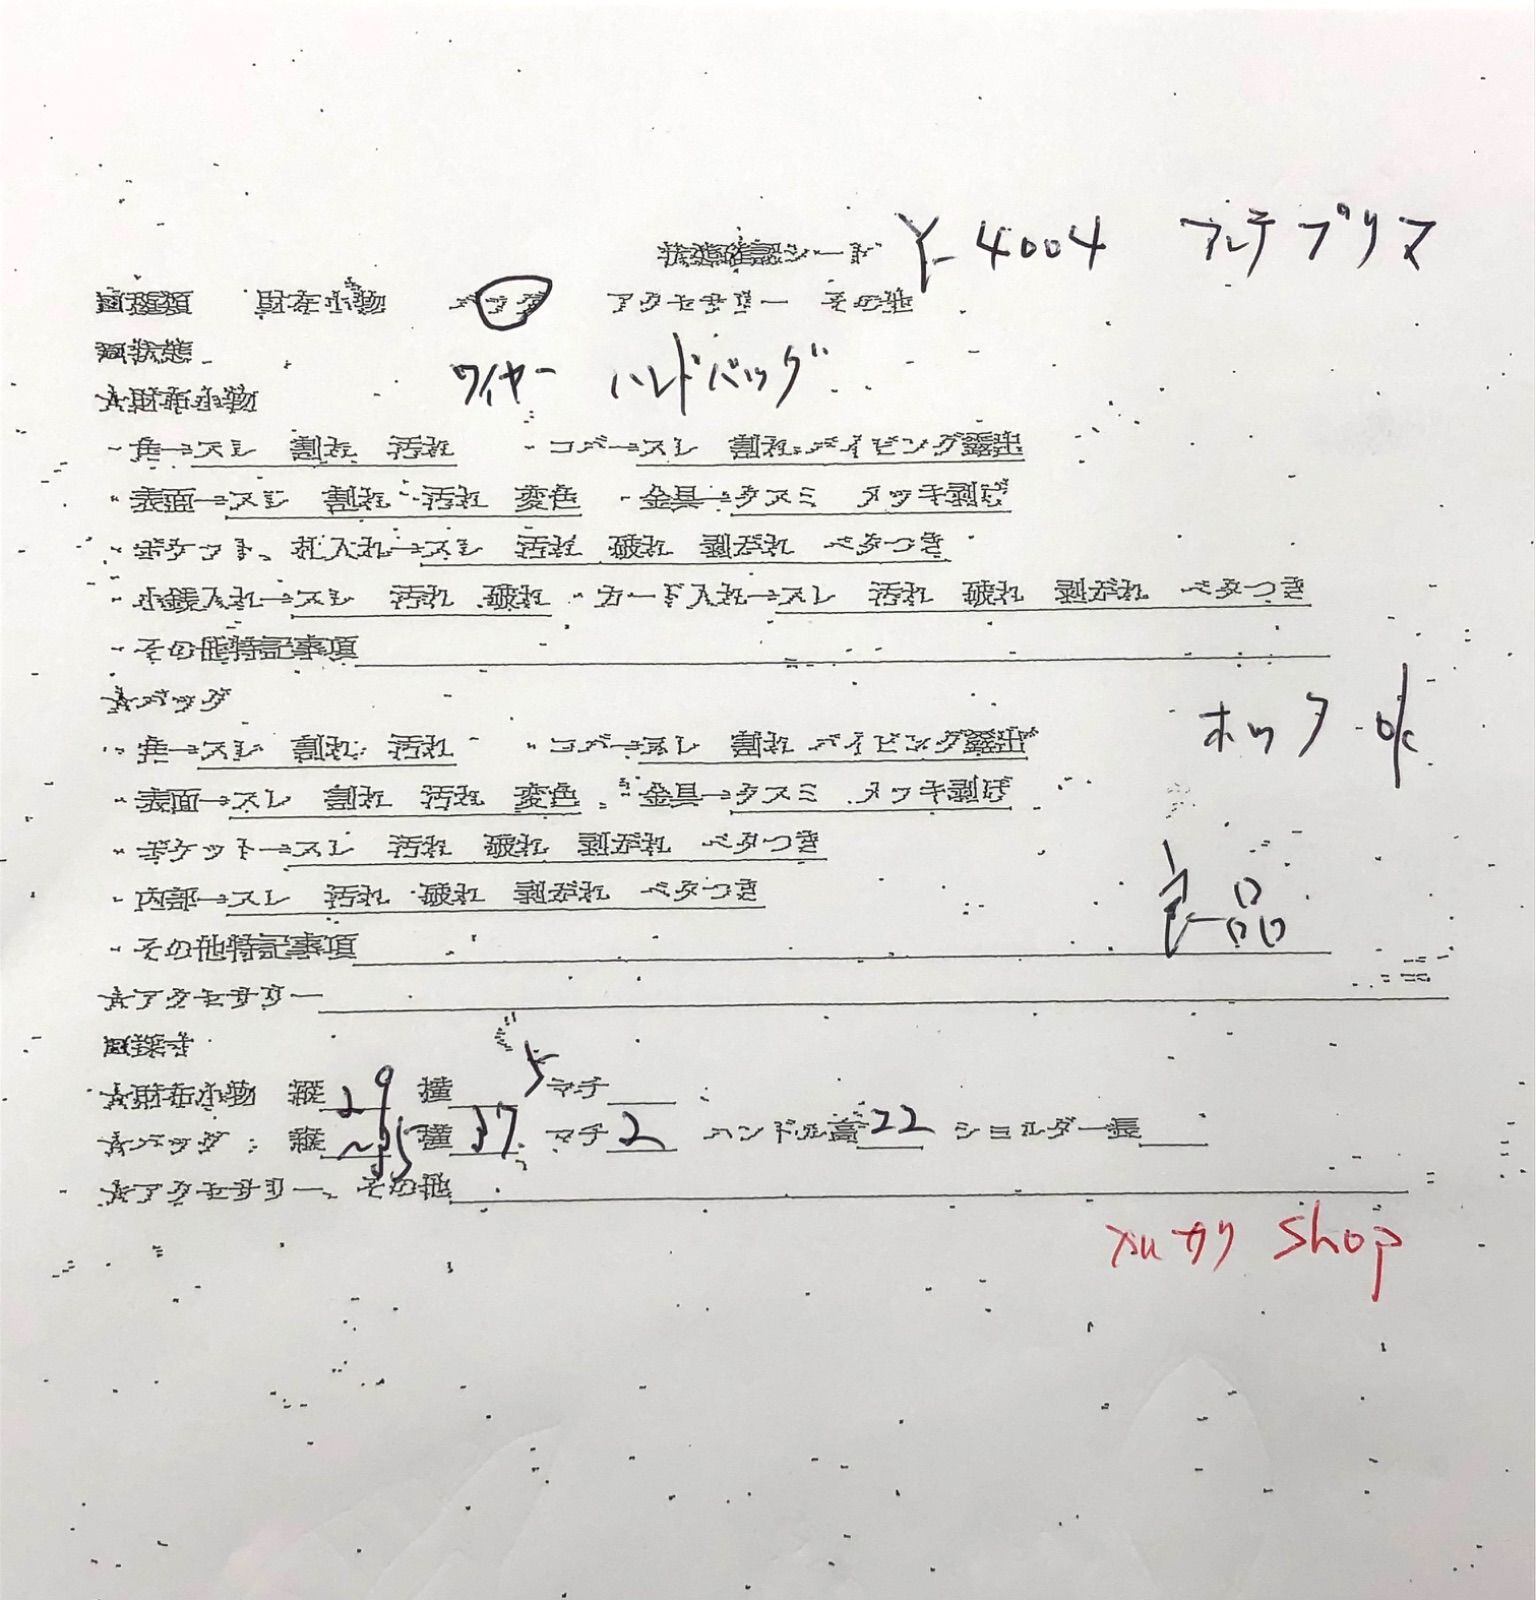 状態確認シート Y-4004 アルテプリマ
回種類 財布小物 バッグ アクセサリー その他
回状態
ワイヤー ハンドバッグ
☆財布小物
・角→スレ 割れ 汚れ ・コバ→スレ 割れ パイピング露出
・表面→スレ 割れ 汚れ 変色 ・金具→クスミ メッキ剥げ
・ポケット、札入れ→スレ 汚れ 破れ 剥がれ ベタつき
・小銭入れ→スレ 汚れ 破れ ・カード入れ→スレ 汚れ 破れ 剥がれ ベタつき
・その他特記事項
☆バッグ
ホック ok
・角→スレ 割れ 汚れ ・コバ→スレ 割れ パイピング露出
・表面→スレ 割れ 汚れ 変色 ・金具→クスミ メッキ剥げ
・ポケット→スレ 汚れ 破れ 剥がれ ベタつき
・内部→スレ 汚れ 破れ 剥がれ ベタつき
品
・その他特記事項
☆アクセサリー
回採寸
☆財布小物 縦 29 横 マチ
☆バッグ 縦 ~35 横 37 マチ 2 ハンドル高 22 ショルダー長
☆アクセサリー、その他
メルカリ shop